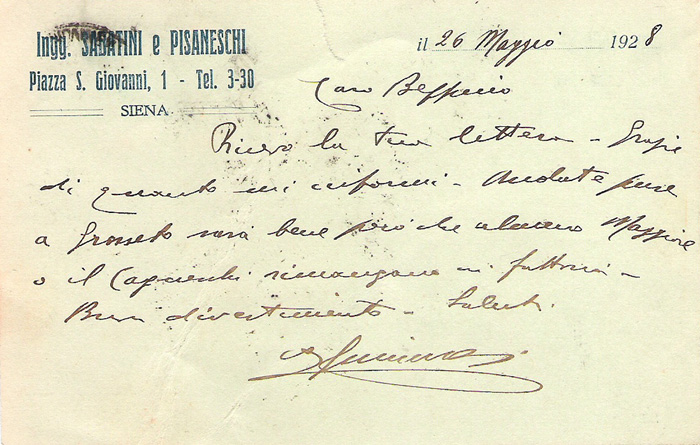 Ingg. SABATINI e PISANESCHI
Piazza S. Giovanni, 1 - Tel. 3-30
SIENA
il 26 Maggio 1928
Caro Beppino
Ricevo la tua lettera - Grazie
di quanto mi informi - Andate pure
a Grosseto sarà bene però che almeno Maggiore
o il rimangano in fattoria -
Buon divertimento - Saluti